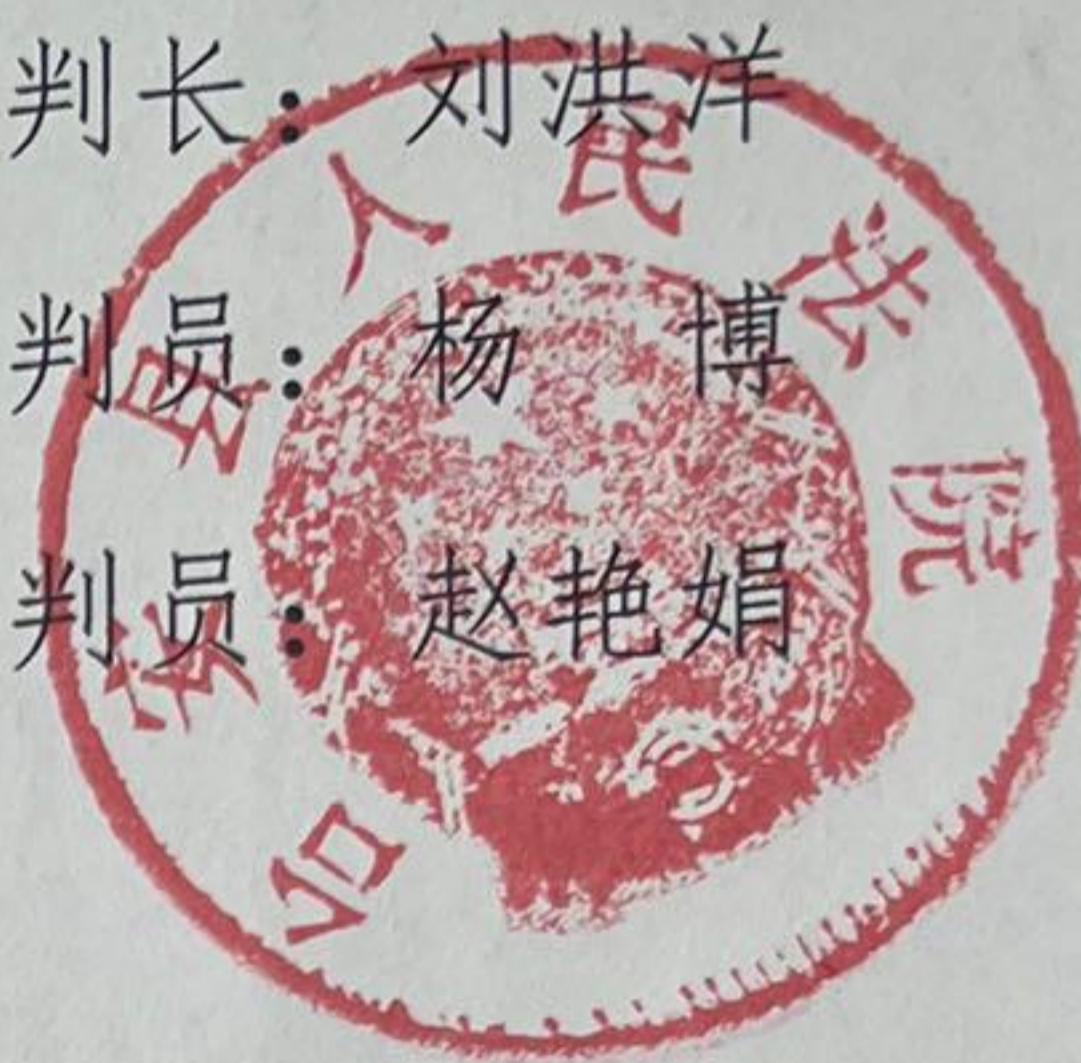 判长：刘洪洋
判员：杨 博
判员：赵艳娟
台安县人民法院